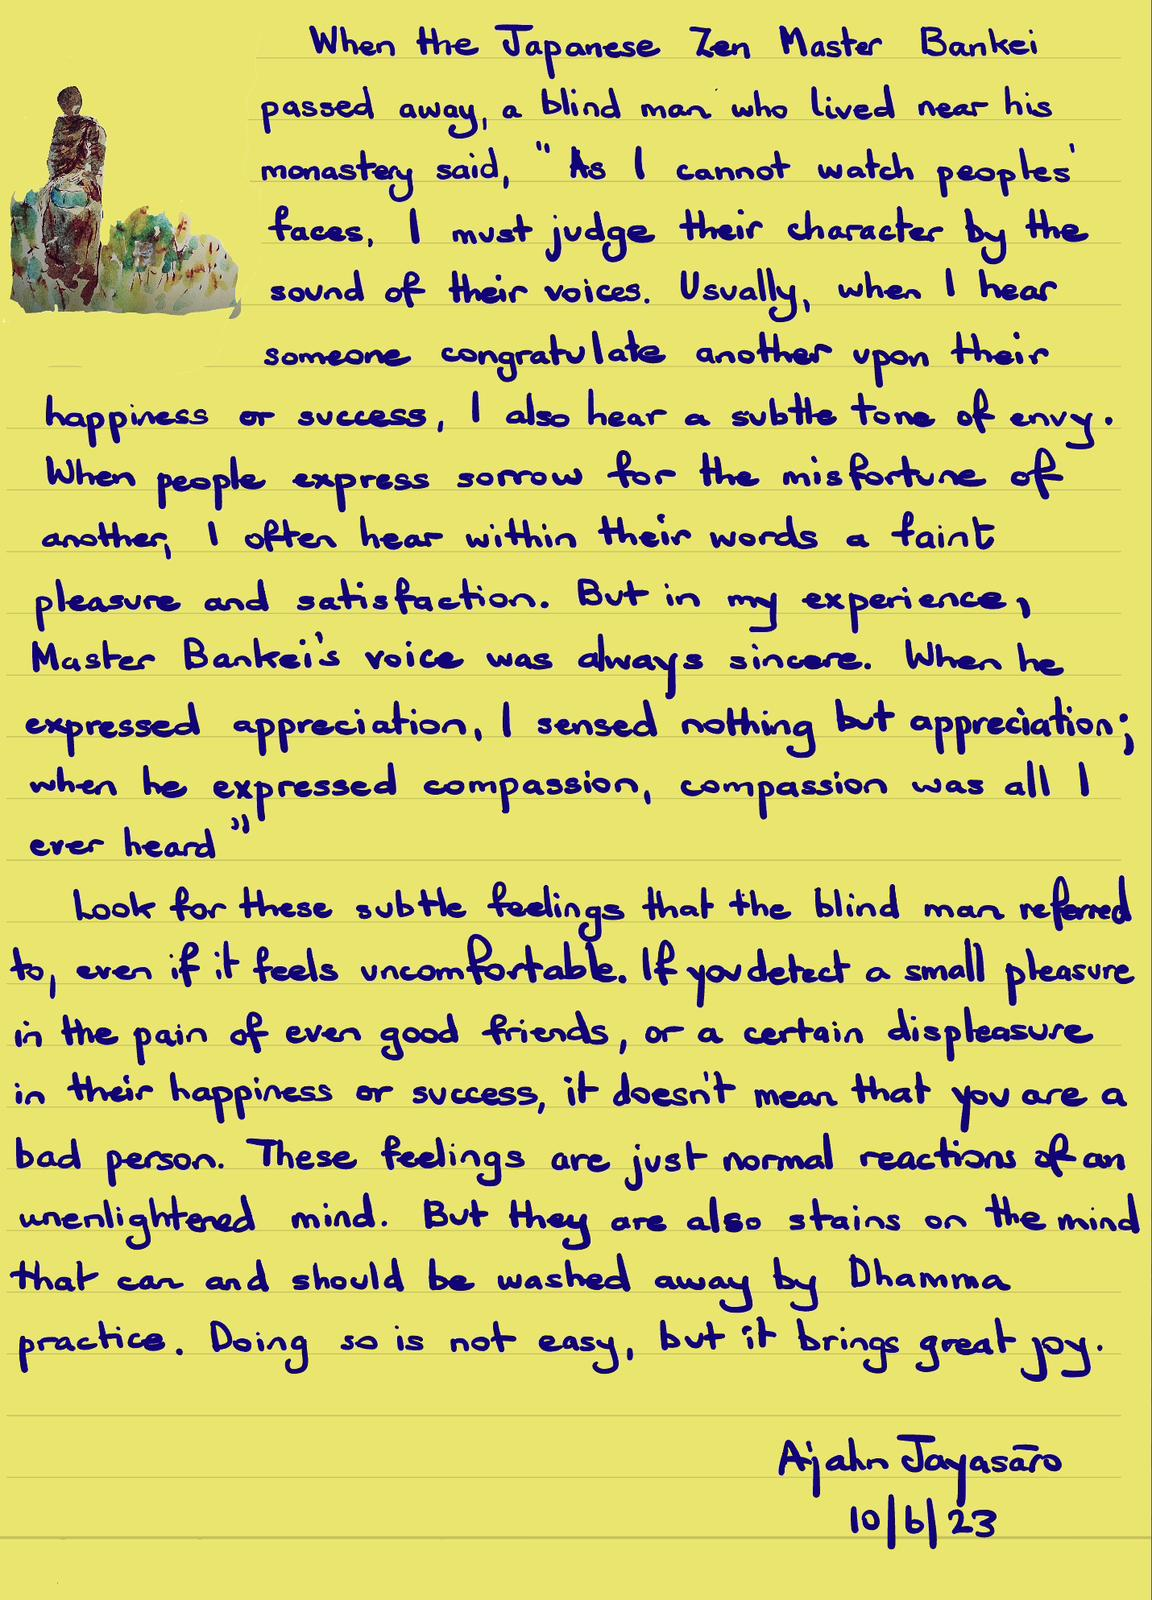 When the Japanese Zen Master Bankei
passed away, a blind man who lived near his
monastery said, "As I cannot watch peoples'
faces, I must judge their character by the
sound of their voices. Usually, when I hear
someone congratulate another upon their
happiness or success, I also hear a subtle tone of envy.
When people express sorrow for the misfortune of
another, I often hear within their words a faint
pleasure and satisfaction. But in my experience,
Master Bankei's voice was always sincere. When he
expressed appreciation, I sensed nothing but appreciation;
when he expressed compassion, compassion was all I
ever heard"
Look for these subtle feelings that the blind man referred
to, even if it feels uncomfortable. If you detect a small pleasure
in the pain of even good friends, or a certain displeasure
in their happiness or success, it doesn't mean that you are a
bad person. These feelings are just normal reactions of an
unenlightened mind. But they are also stains on the mind
that can and should be washed away by Dhamma
practice. Doing so is not easy, but it brings great joy.
Ajahn Jayasāro
10/6/23